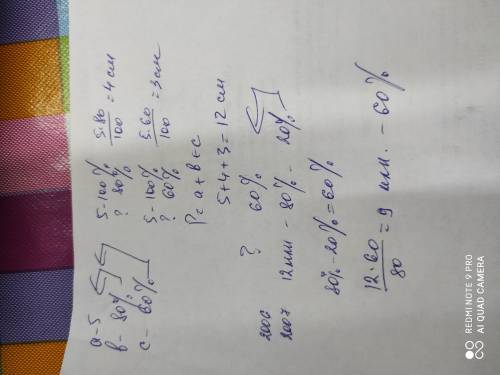 a - 5
b - 80%
c - 60%
5 - 100%
? 80%
5·80/100 = 4 см
5 - 100%
? 60%
5·60/100 = 3 см
P = a + b + c
5+4+3 = 12 см
2006 ? 60%
2007 12 млн - 80% - 20%
80% - 20% = 60%
12·60/80 = 9 млн. - 60%
REDMI NOTE 9 PRO
AI QUAD CAMERA